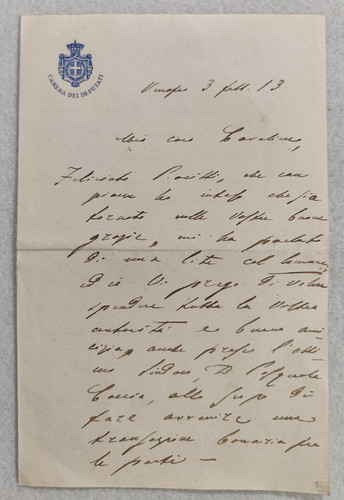 CAMERA DEI DEPUTATI
3 febb. 13
Mio caro Cavaliere,
Feliciato che con
piacere ho inteso che sia
tornato nelle vostre buone
grazie, mi ha parlato
di una lite col Comune
Ed io Vi prego di volere
spendere tutta la vostra
autorità e buona ami
cizia, anche presso l'otti
mo Sindaco, D. Pasquale
allo scopo di
fare avvenire una
transazione bonaria fra
le parti —